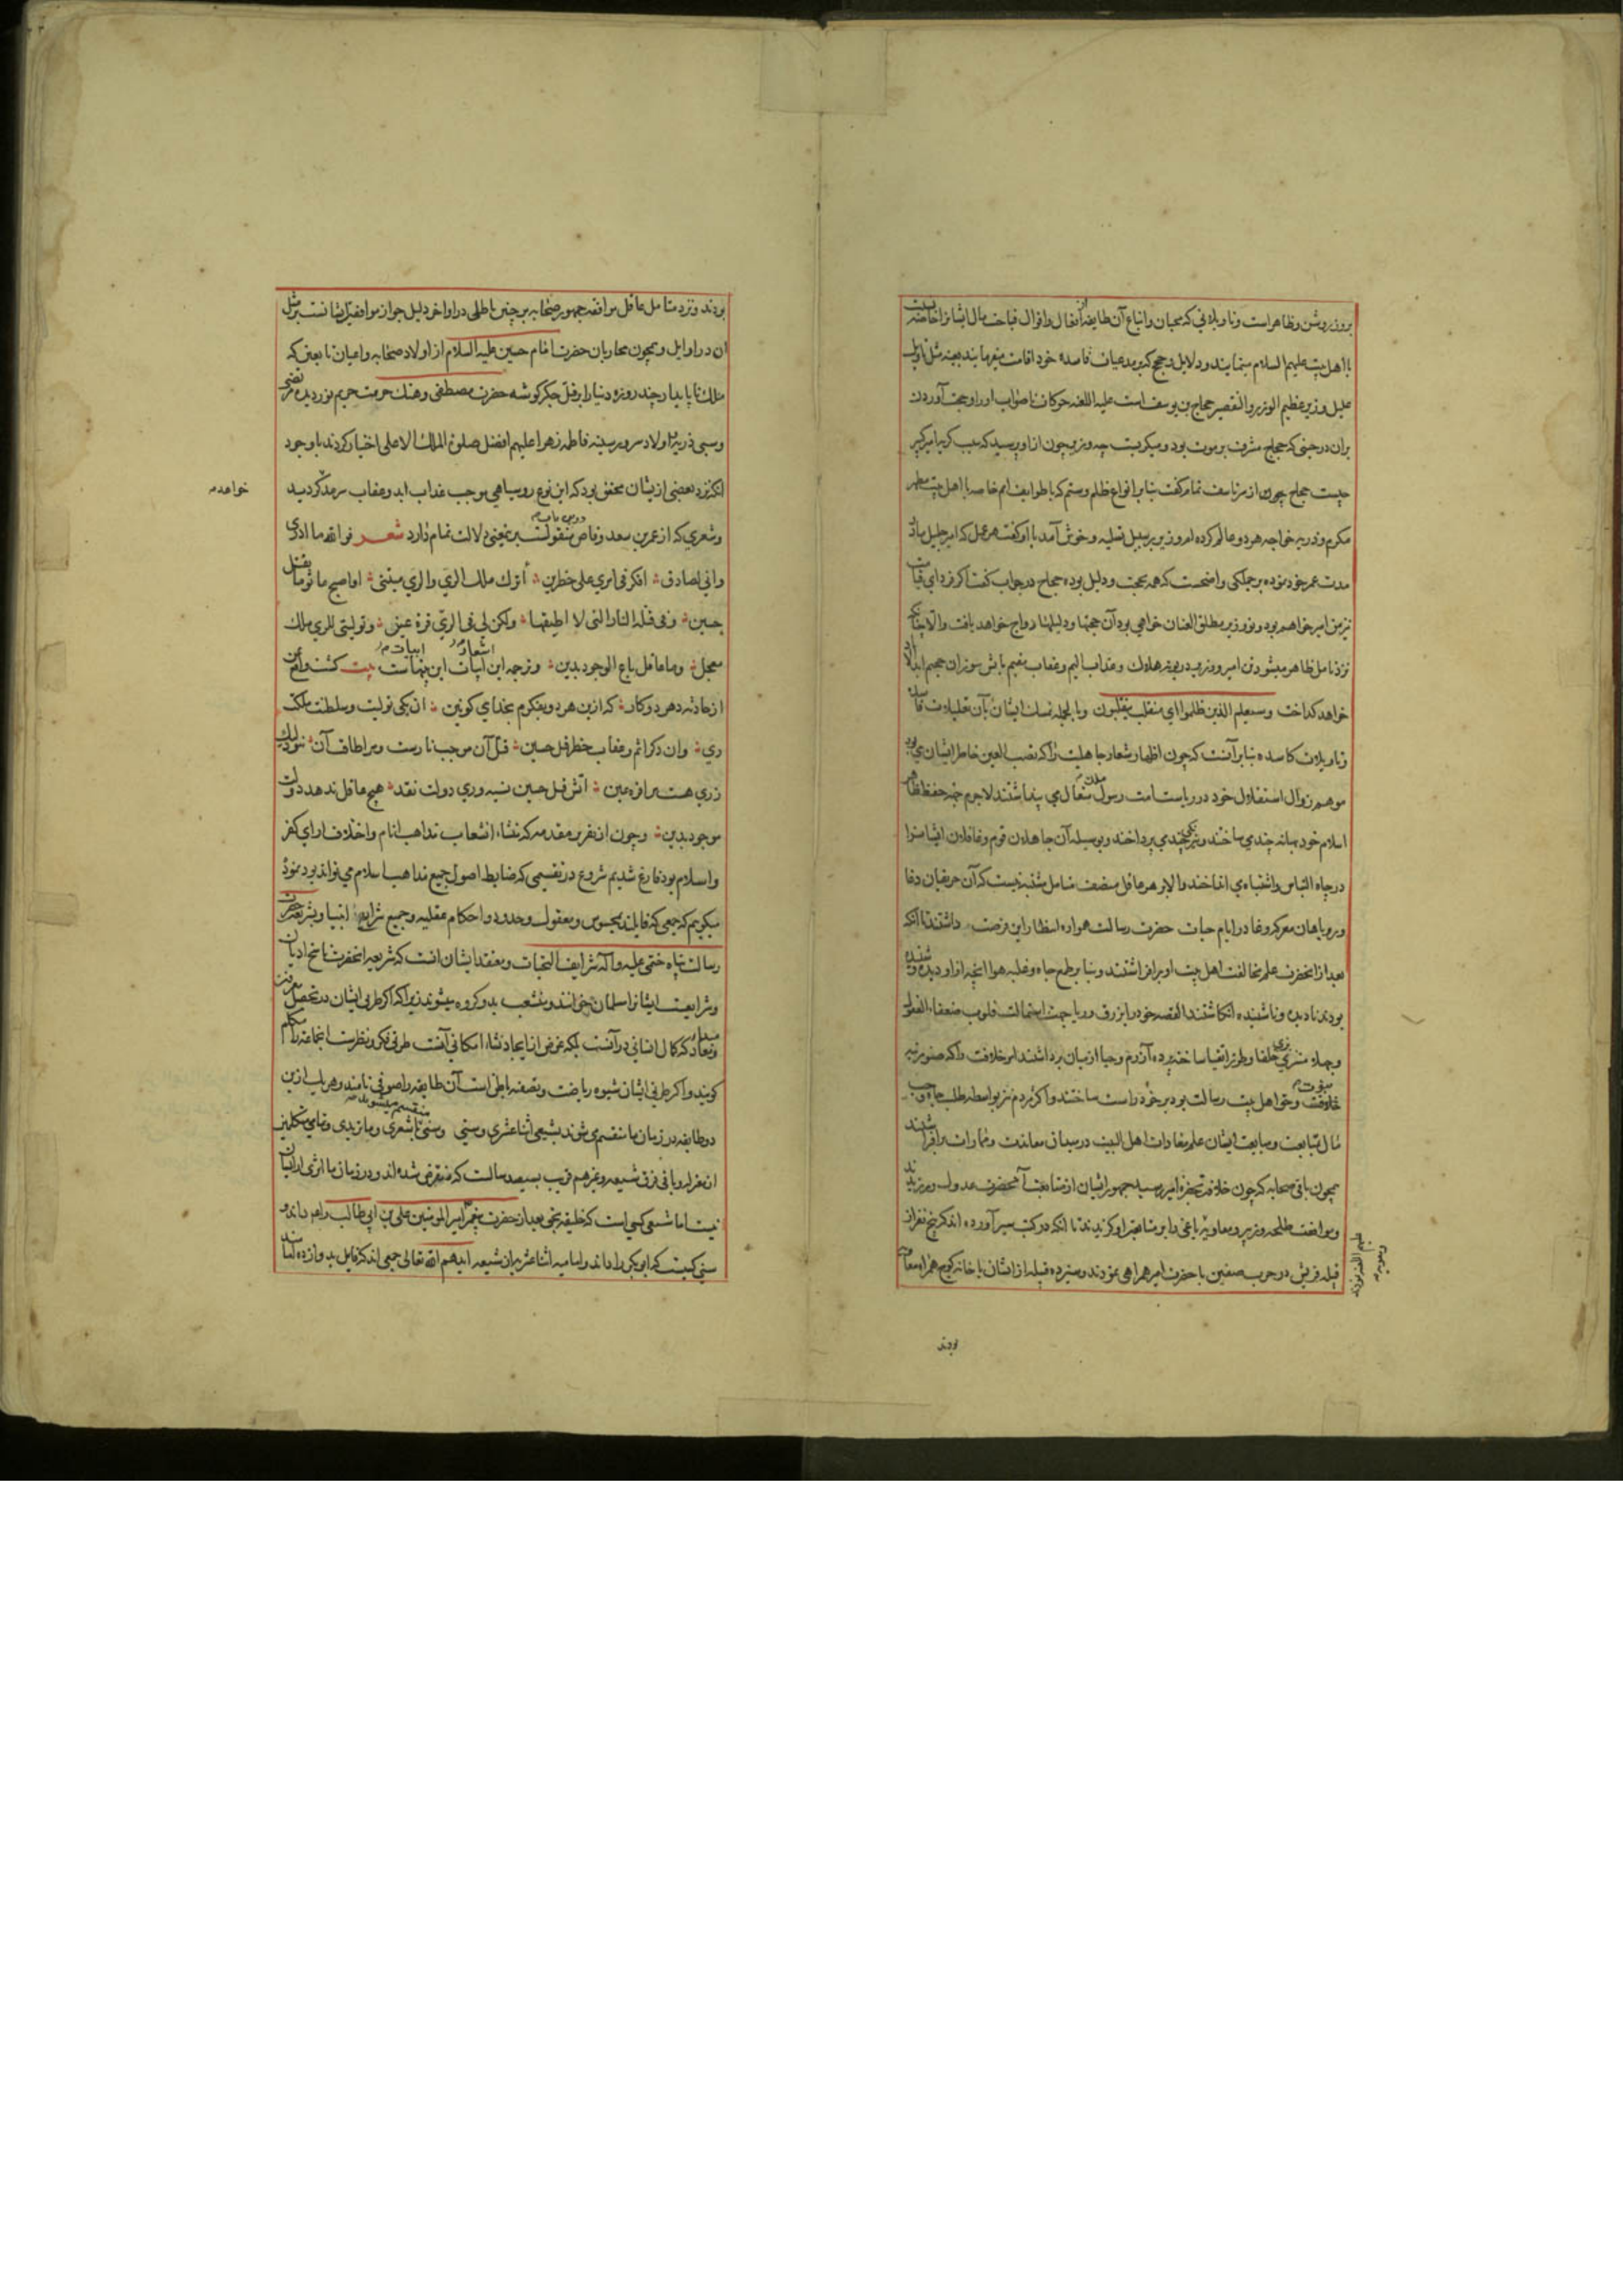 بروز روشن و ظاهر است و تاویلاتی که محبان و اتباع آن طایفه از افعال و اقوال قباحت مال ایشان را خاصه نسبت
با اهل بیت علیهم السلام مینمایند و دلایل و حجج که بر مدعیات فاسده خود اقامت میفرمایند بعینه مثل تاویل
علیل وزیر عظیم الوزر و التقصیر حجاج بن یوسف است علیه اللعنه حرکات ناصواب او را و حجت آوردن
بران در حینی که حجاج مشرف بر موت بود و میکریست چه وزیر چون از او پرسید که سبب کریه امیر کبیر
چیست حجاج چون از سر تاسف تمام کفت بنا بر انواع ظلم و ستم که با طوایف امم خاصه با اهل بیت مطهر
مکرم و ذریه خواجه هر دو عالم کرده ام وزیر بر سبیل تسلیه و خوش آمد با او کفت هر عمل که امیر جلیل
مدت عمر خود نموده بر جملکی واضحست که همه بحجت و دلیل بوده حجاج در جواب کفت اکر فردای قیامت
نیز من امیر خواهم بود و تو وزیر مطلق العنان خواهی بود آن حجتها و دلیلها رواج خواهد یافت و الا
نزد تامل ظاهر میشود که امیر و وزیر در بوته هلاک و عذاب الیم و عقاب مقیم باتش سوزان جحیم
خواهد کداخت وسیعلم الذین ظلموا ای منقلب ینقلبون و بالجمله تمسک ایشان بآن تعلیلات
و تاویلات کاسده بنا بر آنست که چون اظهار شعار جاهلیت را که نصب العین خاطر ایشان می بود
موهم زوال استقلال خود در ریاست امت رسول ملک متعال می پنداشتند لاجرم جهة حفظ ظاهر
اسلام خود بهانه چندی ساختند و نیرنکی چندی پرداختند و بوسیله آن جاهلان قوم و غافلان ایشان را
در چاه التباس و اشتباه انداختند و الا بر هر عاقل منصف متامل مشتبه نیست که آن حریفان دغا
و روباهان معرکه وغا در ایام حیات حضرت رسالت همواره انتظار این فرصت داشتند تا آنکه
بعد از آنحضرت علم مخالفت اهل بیت او بر افراشتند و بنا بر طمع جاه و غلبه هوا آنچه از او دیده و شنیده
بودند نادیده و ناشنیده انکاشتند القصه خود را بزرق و ریا جهت استمالت قلوب ضعفاء العقول
خلافت و حق اهل بیت رسالت بود بر خود راست ساختند و اکثر مردم نیز بواسطه طلب جاه و حب
مال متابعت و مبایعت ایشان علم معادات اهل البیت در میدان معاندت و ممارات بر افراشتند
همچون باقی صحابه که چون خلافت بحضرة امیر رسید جمهور ایشان از متابعت آنحضرت عدول ورزیدند
و موافقت طلحه و زبیر و معاویه یاغی را بر متابعت او کزیدند تا آنکه در کتب سیر آورده اند که پنج نفر از
قبیله قریش در حرب صفین با حضرت امیر همراهی نمودند و سیزده قبیله از ایشان با خانه کوچ همراه معاویه
بودند
بودند و نزد متامل عاقل موافقة جمهور صحابه بر چنین باطلی در اواخر دلیل جواز موافقت ایشانست بر مثل
ان در اوایل و همچون محاربان حضرت امام حسین علیه السلام از اولاد صحابه و اعیان تابعین که
ملک ناپایدار چند روزه دنیا را بر قتل جکر کوشه حضرت مصطفی و هتک حرمت حریم نور دیده مرتضی
و سبی ذریه و اولاد سرور سینه فاطمه زهرا علیهم افضل صلوة الملک الاعلی اختیار کردند با وجود
انکه نزد بعضی از یشان محقق بود که این نوع روسیاهی موجب عذاب ابد و عقاب سرمد کردید
خواهد
و شعری که از عمر بن سعد وقاص منقولست برینمعنی دلالت تمام دارد شعر فوالله ما ادری
وانی لصادق افکر فی امری علی خطرین أاترک ملک الری والری منیتی او اصبح ماثوما بقتل
حسین وفی قتله النار التی لا اطیقها ولکن لی فی الری قرة عین وتولیتی للری ملک
معجل وما عاقل باع الوجود بدین و ترجمه این ابیات این بیتهاست بیت کشت واقع
اشعار ابیات
از حادثه دهر دو کار که ازین هر دو بفکرم بخدای کونین ان یکی تولیت و سلطنت ملکت
ری وان دکر اثم و عقاب خطر قتل حسین قتل آن موجب نارست و مرا طاقت آن نبود لیک
ز ری هست مرا قرة عین آتش قتل حسین نسیه و ری دولت نقد هیچ عاقل ندهد دولت
موجود بدین و چون از تقریر مقدمه که منشاء انشعاب مذاهب انام و اختلاف ارای کفر
و اسلام بود فارغ شدیم شروع در تقسیمی که ضابط اصول جمیع مذاهب اسلام می تواند بود نموده
میکوییم که جمعی که قایلند بمحسوس و معقول و حدود و احکام عقلیه و جمیع شرایع انبیا و بشریعت حضرت
رسالت پناه ختمی علیه و آله شرایف التحیات و معتقد ایشان انست که شریعت انحضرت ناسخ ادیان
و شرایعست ایشانرا مسلمان میخوانند و منشعب بدو کروه میشوند زیرا که اکر طریق ایشان در تحصیل معرفت
مبداء و معاد که کمال انسانی در آنست بلکه غرض از ایجاد نشاء امکانی آنست طریق فکر و نظرست انجماعة را متکلم
کویند و اکر طریق ایشان شیوه ریاضت و تصفیه باطن است آن طایفه را صوفی نامند و هر یک ازین
دو طایفه در زمان ما منقسم می شوند بشیعی اثنا عشری و سنی و سنی باشعری و ماتریدی و تمامی متکلمین
منقسم میشود
از معتزله و باقی فرق شیعه و غیرهم قریب بسیصد سالست که منقرض شده اند و در زمان ما اثری از ایشان
نیست اما شیعی کسی است که خلیفه بحق بعد از حضرت پیغمبر امیر المومنین علی بن ابی طالب را هم داند و
سنی کیست که ابو بکر را داند و امامیه اثنا عشریه از شیعه ایدهم الله تعالی جمعی اند که قایل بدوازده